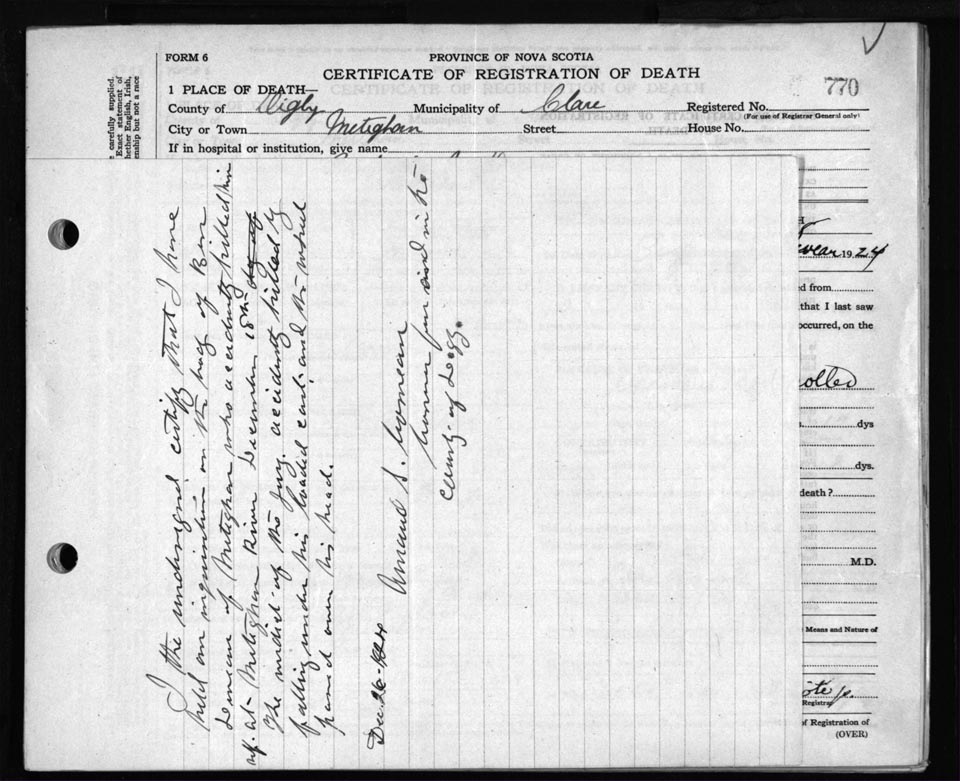 FORM 6
PROVINCE OF NOVA SCOTIA
CERTIFICATE OF REGISTRATION OF DEATH
770
1 PLACE OF DEATH—
County of Digby Municipality of Clare Registered No.
(For use of Registrar General only)
City or Town Meteghan Street House No.
If in hospital or institution, give name
carefully supplied.
Exact statement of
hether English, Irish,
enship but not a race
I the undersigned certify that I have
held an inquisition on the body of Ben
Comeau of Meteghan who accidently killed him
self at Meteghan River December 18th
The verdict of the Jury. accidently killed by
falling under his loaded cart and the wheel
passed over his head.
Dec 26-1924
Amand S. Comeau
Coroner for and in the
County of Digby.
year 1924
d from
that I last saw
occurred, on the
dys
dys.
death?
M.D.
Means and Nature of
Registrar
of Registration of
(OVER)